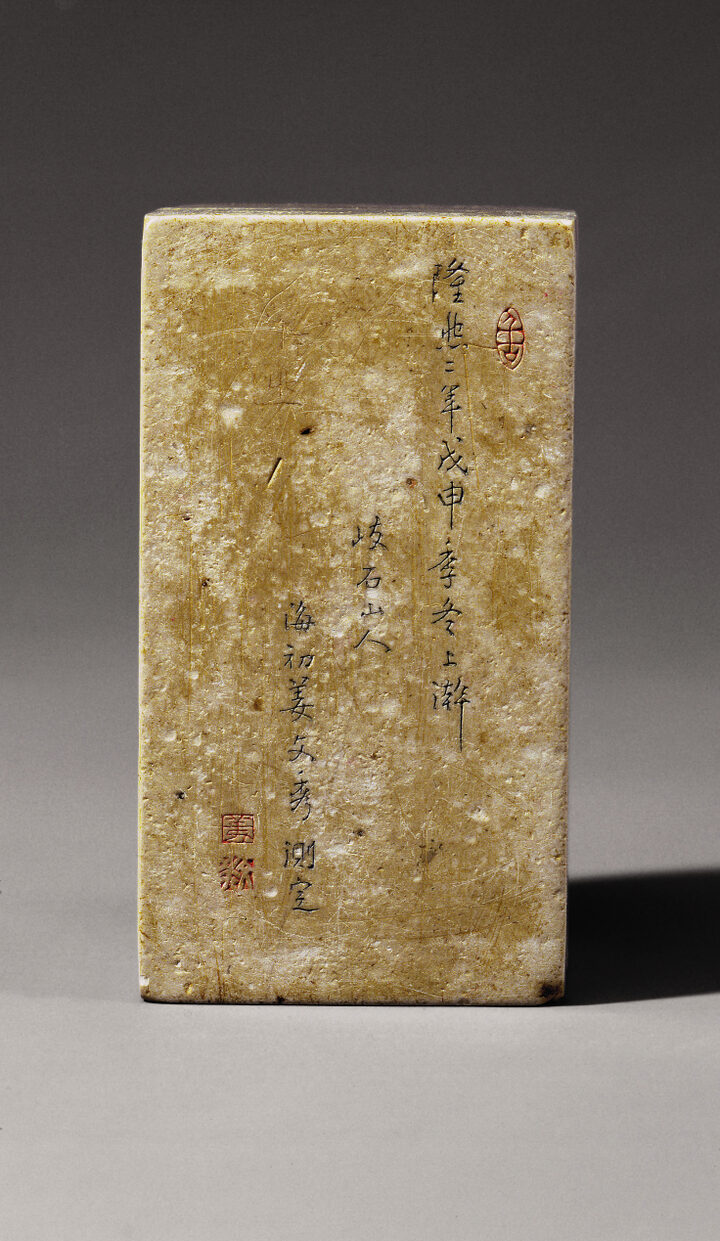 隆熙二年戊申季冬上澣
岐石山人
海初姜文秀測定